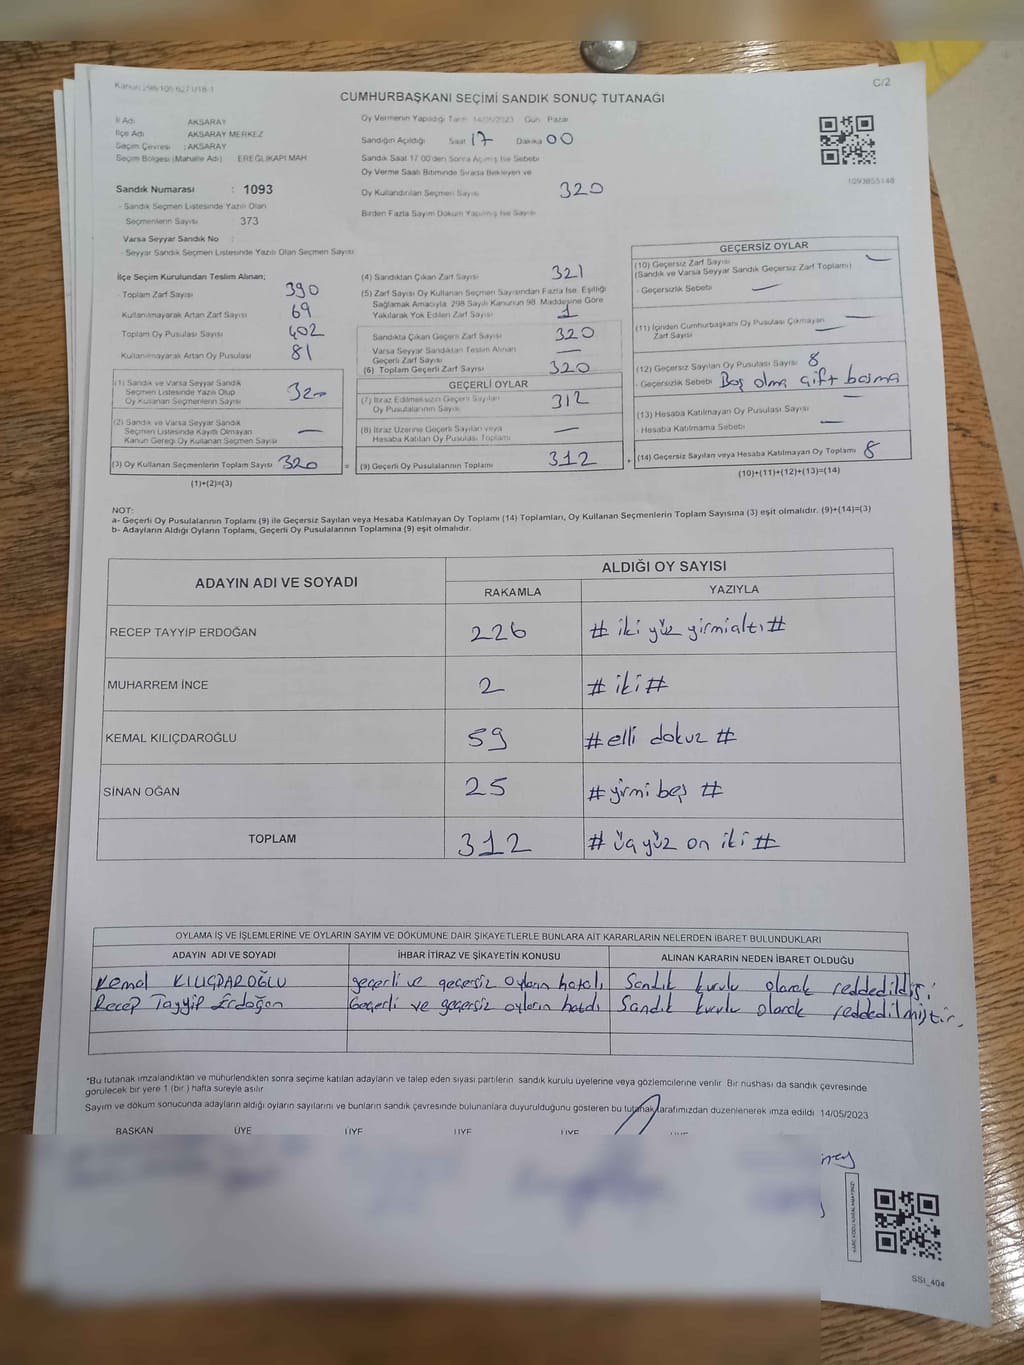 Kanun: 298/105 6271/18-1
C/2
CUMHURBAŞKANI SEÇİMİ SANDIK SONUÇ TUTANAĞI
İl Adı AKSARAY
İlçe Adı AKSARAY MERKEZ
Seçim Çevresi : AKSARAY
Seçim Bölgesi (Mahalle Adı) EREĞLİKAPI MAH
Oy Vermenin Yapıldığı Tarih 14/05/2023 Gün Pazar
Sandığın Açıldığı Saat 17 Dakika 00
Sandık Saat 17 00'den Sonra Açılmış İse Sebebi
Oy Verme Saati Bitiminde Sırada Bekleyen ve
Oy Kullandırılan Seçmen Sayısı 320
Birden Fazla Sayım Döküm Yapılmış İse Sayısı
1093855148
Sandık Numarası : 1093
- Sandık Seçmen Listesinde Yazılı Olan
Seçmenlerin Sayısı 373
Varsa Seyyar Sandık No :
- Seyyar Sandık Seçmen Listesinde Yazılı Olan Seçmen Sayısı
İlçe Seçim Kurulundan Teslim Alınan;
Toplam Zarf Sayısı 390
Kullanılmayarak Artan Zarf Sayısı 69
Toplam Oy Pusulası Sayısı 402
Kullanılmayarak Artan Oy Pusulası 81
(1) Sandık ve Varsa Seyyar Sandık
Seçmen Listesinde Yazılı Olup
Oy Kullanan Seçmenlerin Sayısı 320
(2) Sandık ve Varsa Seyyar Sandık
Seçmen Listesinde Kayıtlı Olmayan
Kanun Gereği Oy Kullanan Seçmen Sayısı —
(3) Oy Kullanan Seçmenlerin Toplam Sayısı 320 =
(1)+(2)=(3)
(4) Sandıktan Çıkan Zarf Sayısı 321
(5) Zarf Sayısı Oy Kullanan Seçmen Sayısından Fazla İse, Eşitliği
Sağlamak Amacıyla, 298 Sayılı Kanunun 98. Maddesine Göre
Yakılarak Yok Edilen Zarf Sayısı 1
Sandıkta Çıkan Geçerli Zarf Sayısı 320
Varsa Seyyar Sandıktan Teslim Alınan
Geçerli Zarf Sayısı —
(6) Toplam Geçerli Zarf Sayısı 320
GEÇERLİ OYLAR
(7) İtiraz Edilmeksizin Geçerli Sayılan
Oy Pusulalarının Sayısı 312
(8) İtiraz Üzerine Geçerli Sayılan veya
Hesaba Katılan Oy Pusulası Toplamı —
(9) Geçerli Oy Pusulalarının Toplamı 312 +
GEÇERSİZ OYLAR
(10) Geçersiz Zarf Sayısı —
(Sandık ve Varsa Seyyar Sandık Geçersiz Zarf Toplamı)
- Geçersizlik Sebebi —
(11) İçinden Cumhurbaşkanı Oy Pusulası Çıkmayan —
Zarf Sayısı
(12) Geçersiz Sayılan Oy Pusulası Sayısı 8
- Geçersizlik Sebebi Boş olma çift basma
(13) Hesaba Katılmayan Oy Pusulası Sayısı —
- Hesaba Katılmama Sebebi —
(14) Geçersiz Sayılan veya Hesaba Katılmayan Oy Toplamı 8
(10)+(11)+(12)+(13)=(14)
NOT:
a- Geçerli Oy Pusulalarının Toplamı (9) ile Geçersiz Sayılan veya Hesaba Katılmayan Oy Toplamı (14) Toplamları, Oy Kullanan Seçmenlerin Toplam Sayısına (3) eşit olmalıdır. (9)+(14)=(3)
b- Adayların Aldığı Oyların Toplamı, Geçerli Oy Pusulalarının Toplamına (9) eşit olmalıdır.
ADAYIN ADI VE SOYADI ALDIĞI OY SAYISI
RAKAMLA YAZIYLA
RECEP TAYYİP ERDOĞAN 226 # iki yüz yirmialtı #
MUHARREM İNCE 2 # iki #
KEMAL KILIÇDAROĞLU 59 # elli dokuz #
SİNAN OĞAN 25 # yirmi beş #
TOPLAM 312 # üç yüz on iki #
OYLAMA İŞ VE İŞLEMLERİNE VE OYLARIN SAYIM VE DÖKÜMÜNE DAİR ŞİKAYETLERLE BUNLARA AİT KARARLARIN NELERDEN İBARET BULUNDUKLARI
ADAYIN ADI VE SOYADI İHBAR İTİRAZ VE ŞİKAYETİN KONUSU ALINAN KARARIN NEDEN İBARET OLDUĞU
Kemal KILIÇDAROĞLU geçerli ve geçersiz oyların hatalı Sandık kurulu olarak reddedildi
Recep Tayyip Erdoğan Geçerli ve geçersiz oyların hatalı Sandık kurulu olarak reddedilmiştir.
*Bu tutanak imzalandıktan ve mühürlendikten sonra seçime katılan adayların ve talep eden siyasi partilerin sandık kurulu üyelerine veya gözlemcilerine verilir. Bir nüshası da sandık çevresinde
görülecek bir yere 1 (bir ) hafta süreyle asılır
Sayım ve döküm sonucunda adayların aldığı oyların sayılarını ve bunların sandık çevresinde bulunanlara duyurulduğunu gösteren bu tutanak tarafımızdan düzenlenerek imza edildi 14/05/2023
BAŞKAN ÜYE ÜYE ÜYE ÜYE ÜYE
SSI_404